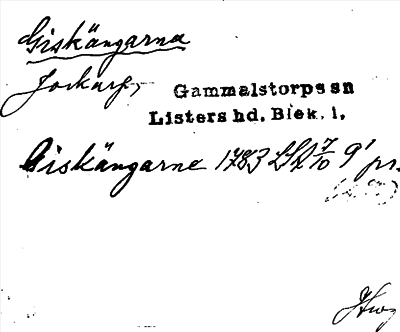 Giskängarna
Gammalstorps sn
Listers hd. Blek. l.
Giskängarne 1783 LSA 7/10 9' pr.